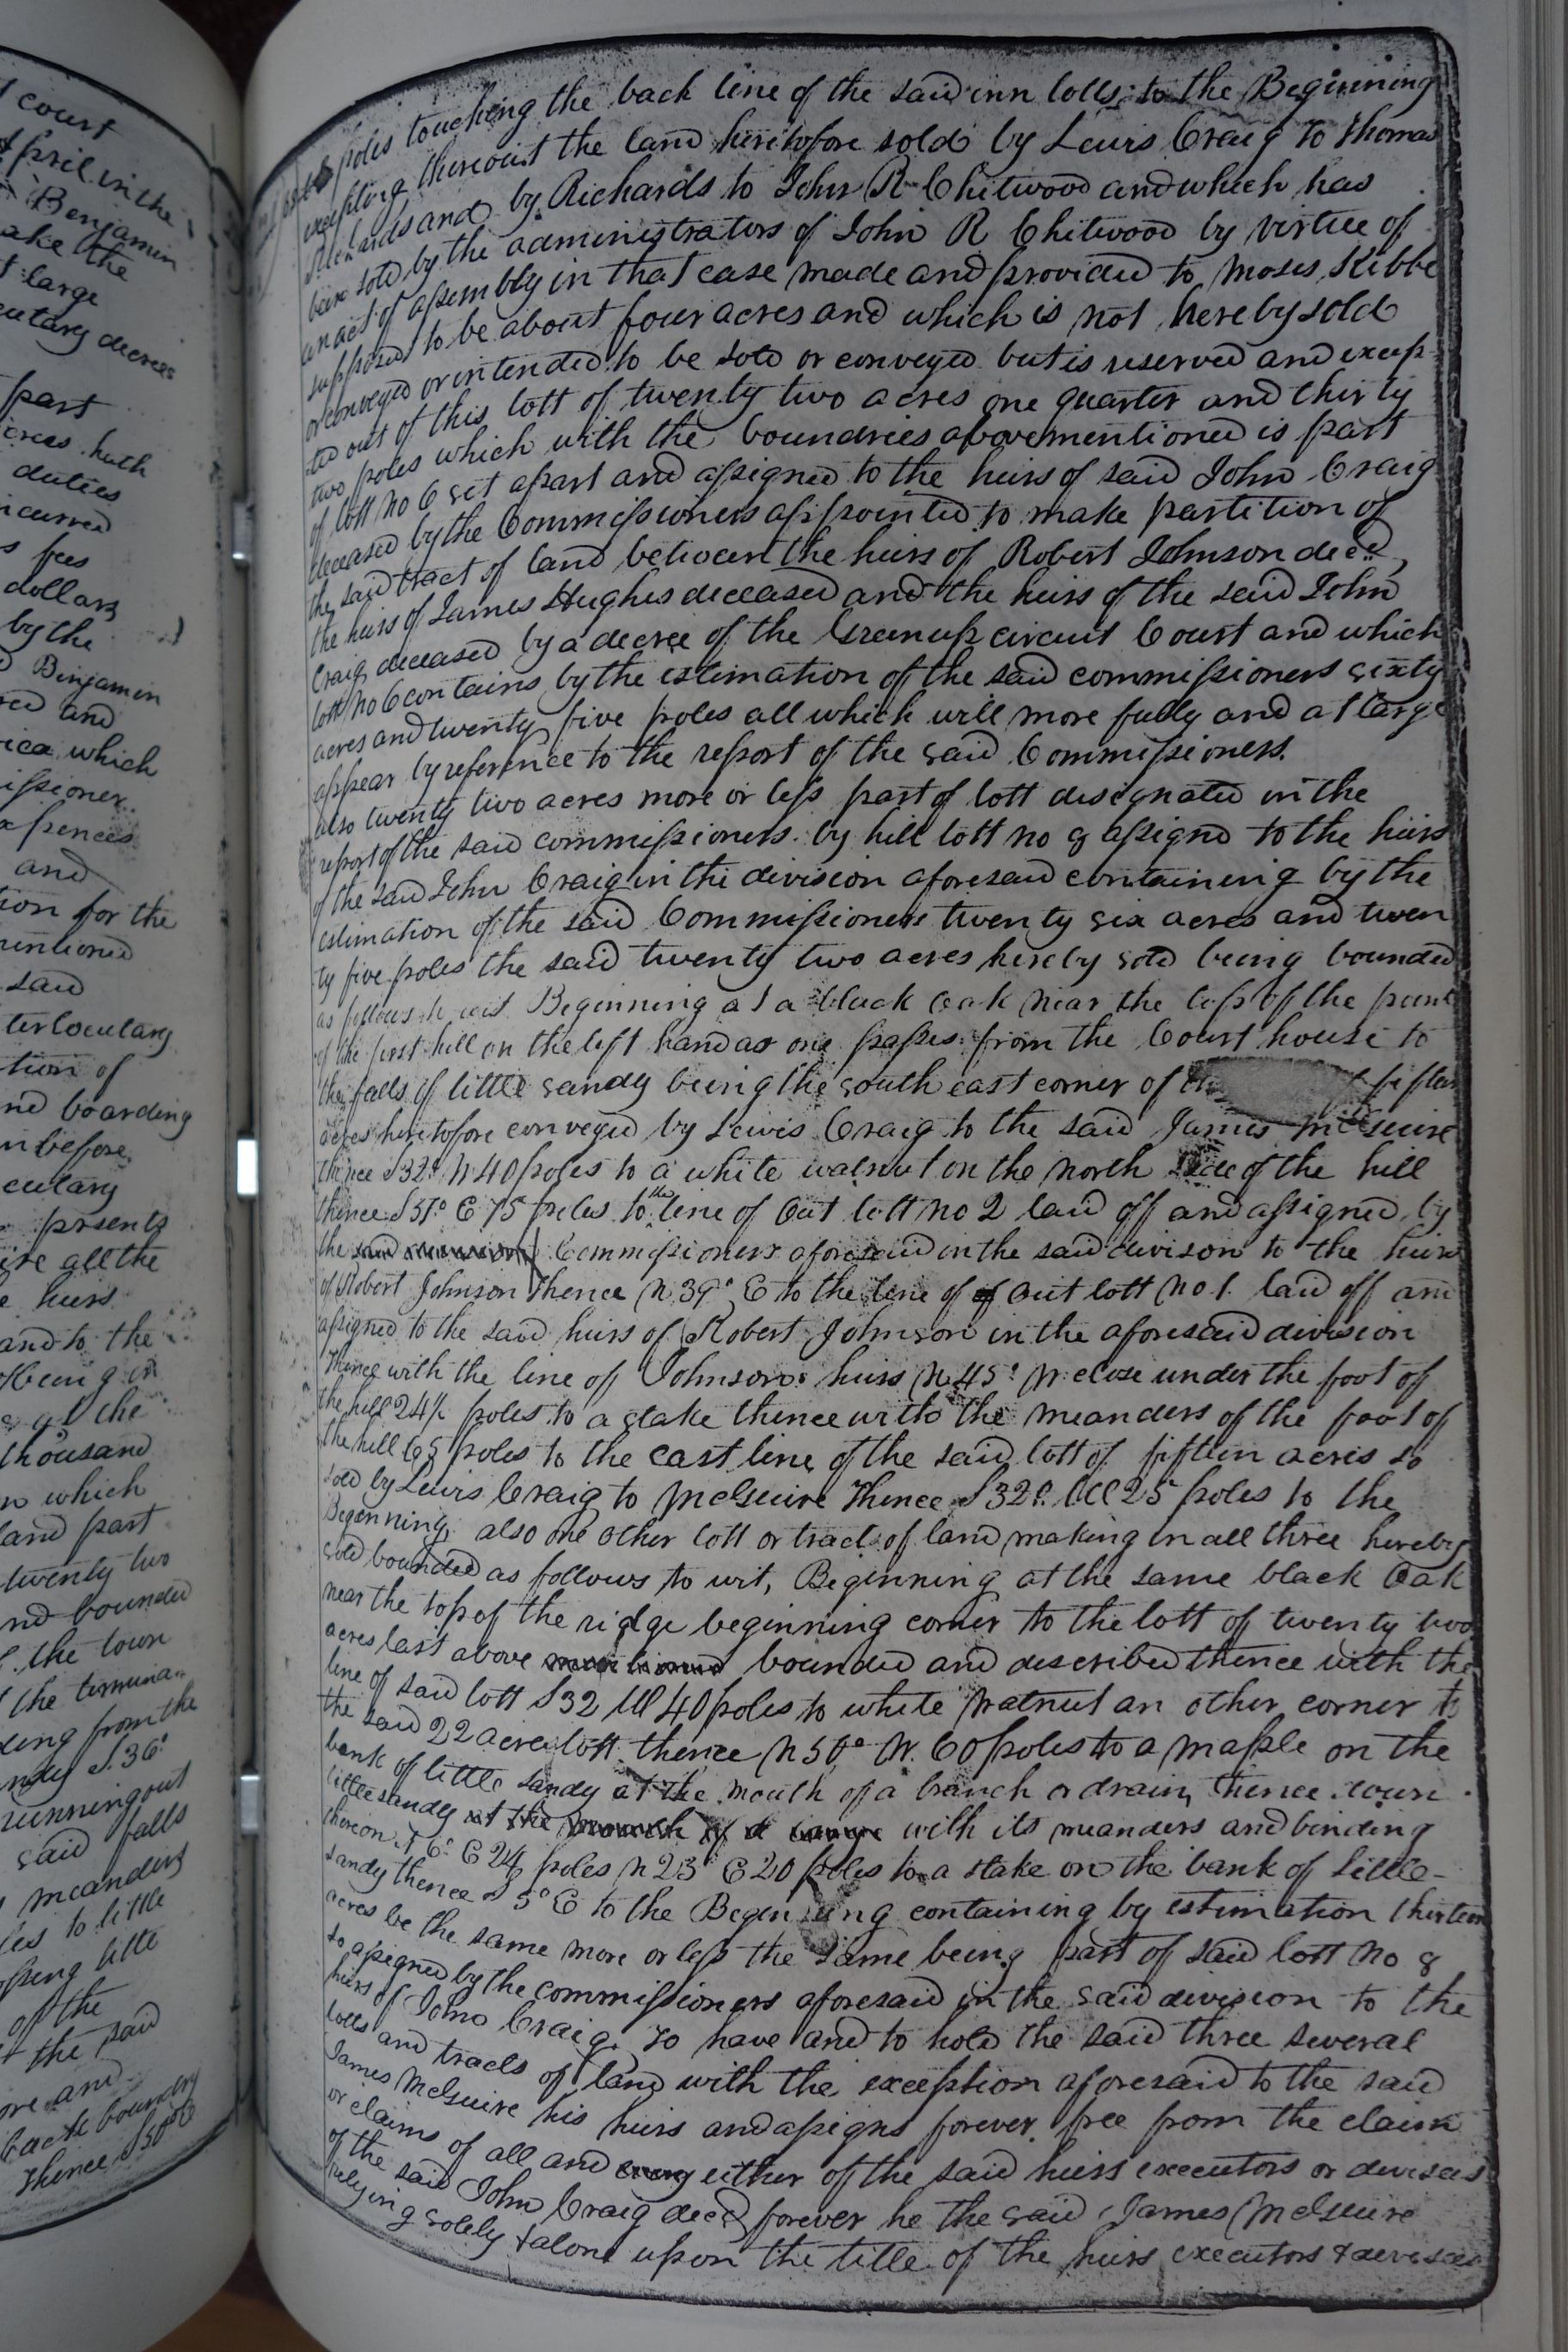 court
April in the
Benjamin
ake the
large
cutary decrees
part
crees hath
duties
incurred
s fees
dollars
by the
Benjamin
red and
rica which
issioner
xpences
and
tion for the
mentioned
said
terlocutary
tion of
nd boarding
n before
cutary
presents
ire all the
heirs
and to the
being in
at the
thousand
n which
land part
twenty two
nd bounded
the town
the termina-
ding from the
ndy S. 36°
running out
said falls
meanders
les to little
of the
the said
ore and
back boundry
thence S50° E
poles touching the back line of the said inn lotts to the Beginning
excepting thereout the land heretofore sold by Lewis Craig to Thomas
Richards and by Richards to John R Chitwood and which has
been sold by the administrators of John R Chitwood by virtue of
an act of assembly in that case made and provided to Moses Kibbe
supposed to be about four acres and which is not hereby sold
or conveyed or intended to be sold or conveyed but is reserved and excep-
ted out of this lott of twenty two acres one quarter and thirty
two poles which with the boundries abovementioned is part
of lott no 6 set apart and assigned to the heirs of said John Craig
deceased by the Commissioners appointed to make partition of
the said tract of land between the heirs of Robert Johnson decd,
the heirs of James Hughes deceased and the heirs of the said John
Craig deceased by a decree of the Greenup circuit Court and which
lott no 6 contains by the estimation of the said commissioners sixty
acres and twenty five poles all which will more fully and at large
appear by reference to the report of the said Commissioners.
also twenty two acres more or less part of lott designated in the
report of the said commissioners by hill lott no 8 assignd to the heirs
of the said John Craig in the division aforesaid containing by the
estimation of the said Commissioners twenty six acres and twen
ty five poles the said twenty two acres hereby sold being bounded
as follows to wit Beginning at a black oak near the top of the point
of the first hill on the left hand as one passes from the Court house to
the falls of little sandy being the south east corner of
acres heretofore conveyed by Lewis Craig to the said James McGuire
thence S32° W 40 poles to a white walnut on the north side of the hill
thence S 51° E 75 poles to the line of Out lott no 2 laid off and assigned by
the said Commissioners aforesaid in the said divison to the heirs
of Robert Johnson thence N 39° E to the line of of Out lott No 1. laid off and
assigned to the said heirs of Robert Johnson in the aforesaid division
thence with the line of Johnsons heirs N 45° W close under the foot of
the hill 24½ poles to a stake thence with the meanders of the foot of
the hill 65 poles to the east line of the said lott of fifteen acres so
sold by Lewis Craig to McGuire Thence S32° W 25 poles to the
Beginning, also one other lott or tract of land making in all three hereby
sold bounded as follows to wit, Beginning at the same black Oak
near the top of the ridge beginning corner to the lott of twenty two
acres last above mentioned bounded and described thence with the
line of said lott S32 W 40 poles to white Walnut an other corner to
the said 22 acre lott. thence N 50° W. 60 poles to a maple on the
bank of little sandy at the mouth of a branch or drain, thence down
little sandy at the mouth of a with its meanders and binding
thereon N 6° E 24 poles N 23° E 20 poles to a stake on the bank of little-
sandy thence S 5° E to the Beginning containing by estimation thirteen
acres be the same more or less the same being part of said lott No 8
so assigned by the commissioners aforesaid in the said division to the
heirs of John Craig. To have and to hold the said three several
lotts and tracts of land with the exception aforesaid to the said
James McGuire his heirs and assigns forever free from the claim
or claims of all and every either of the said heirs executors or devisees
of the said John Craig decd forever he the said James McGuire
relying solely & alone upon the title of the heirs executors & devisees